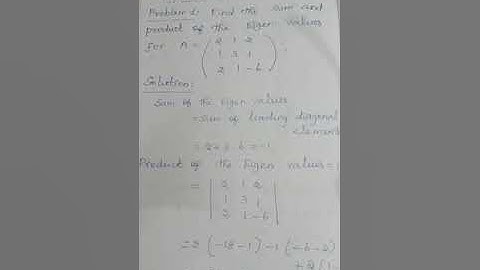 Problem 2: Find the sum and
product of the Eigen values
For A = ( 2 1 2
1 3 1
2 1 -6 )
Solution:
Sum of the Eigen values
= sum of leading diagonal
elements
= 2+3-6 = -1
Product of the Eigen values =
= | 2 1 2
1 3 1
2 1 -6 |
= 2 (-18-1) -1 (-6-2)
+ 2 (1-